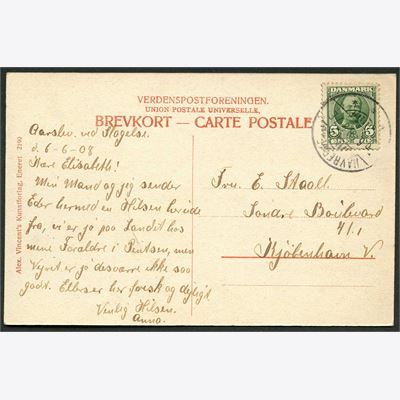 VERDENSPOSTFORENINGEN.
UNION POSTALE UNIVERSELLE.
BREVKORT — CARTE POSTALE
DANMARK
5 5
ØRE
Alex. Vincent's Kunstforlag, Eneret 2190
ved Slagelse
d. 6-6-08
Kære Elisabeth!
Min Mand og jeg sender
Eder hermed en Hilsen herinde
fra, vi er jo paa Landet hos
mine Forældre i Pintsen, men
Vejret er jo desværre ikke saa
godt. Ellers er her frisk og dejligt
Venlig Hilsen.
Anna.
Fru E.
Søndre Boulevard
Kjøbenhavn V.